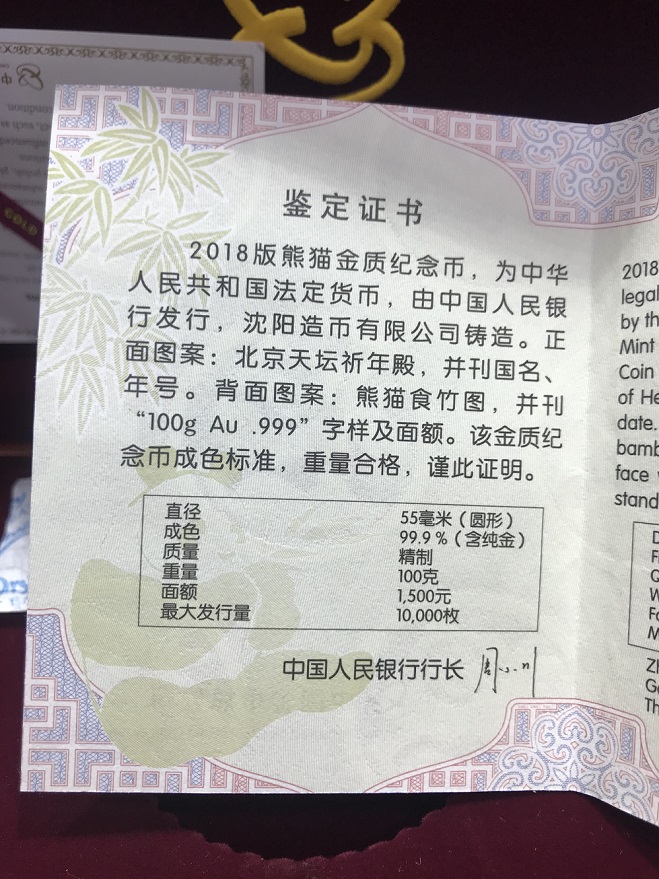 鉴定证书
2018版熊猫金质纪念币，为中华
人民共和国法定货币，由中国人民银
行发行，沈阳造币有限公司铸造。正
面图案：北京天坛祈年殿，并刊国名、
年号。背面图案：熊猫食竹图，并刊
“100g Au .999”字样及面额。该金质纪
念币成色标准，重量合格，谨此证明。
直径 55毫米（圆形）
成色 99.9％（含纯金）
质量 精制
重量 100克
面额 1,500元
最大发行量 10,000枚
中国人民银行行长
2018
legal
by th
Mint
Coin
of He
date.
bamb
face
stand
GOLD